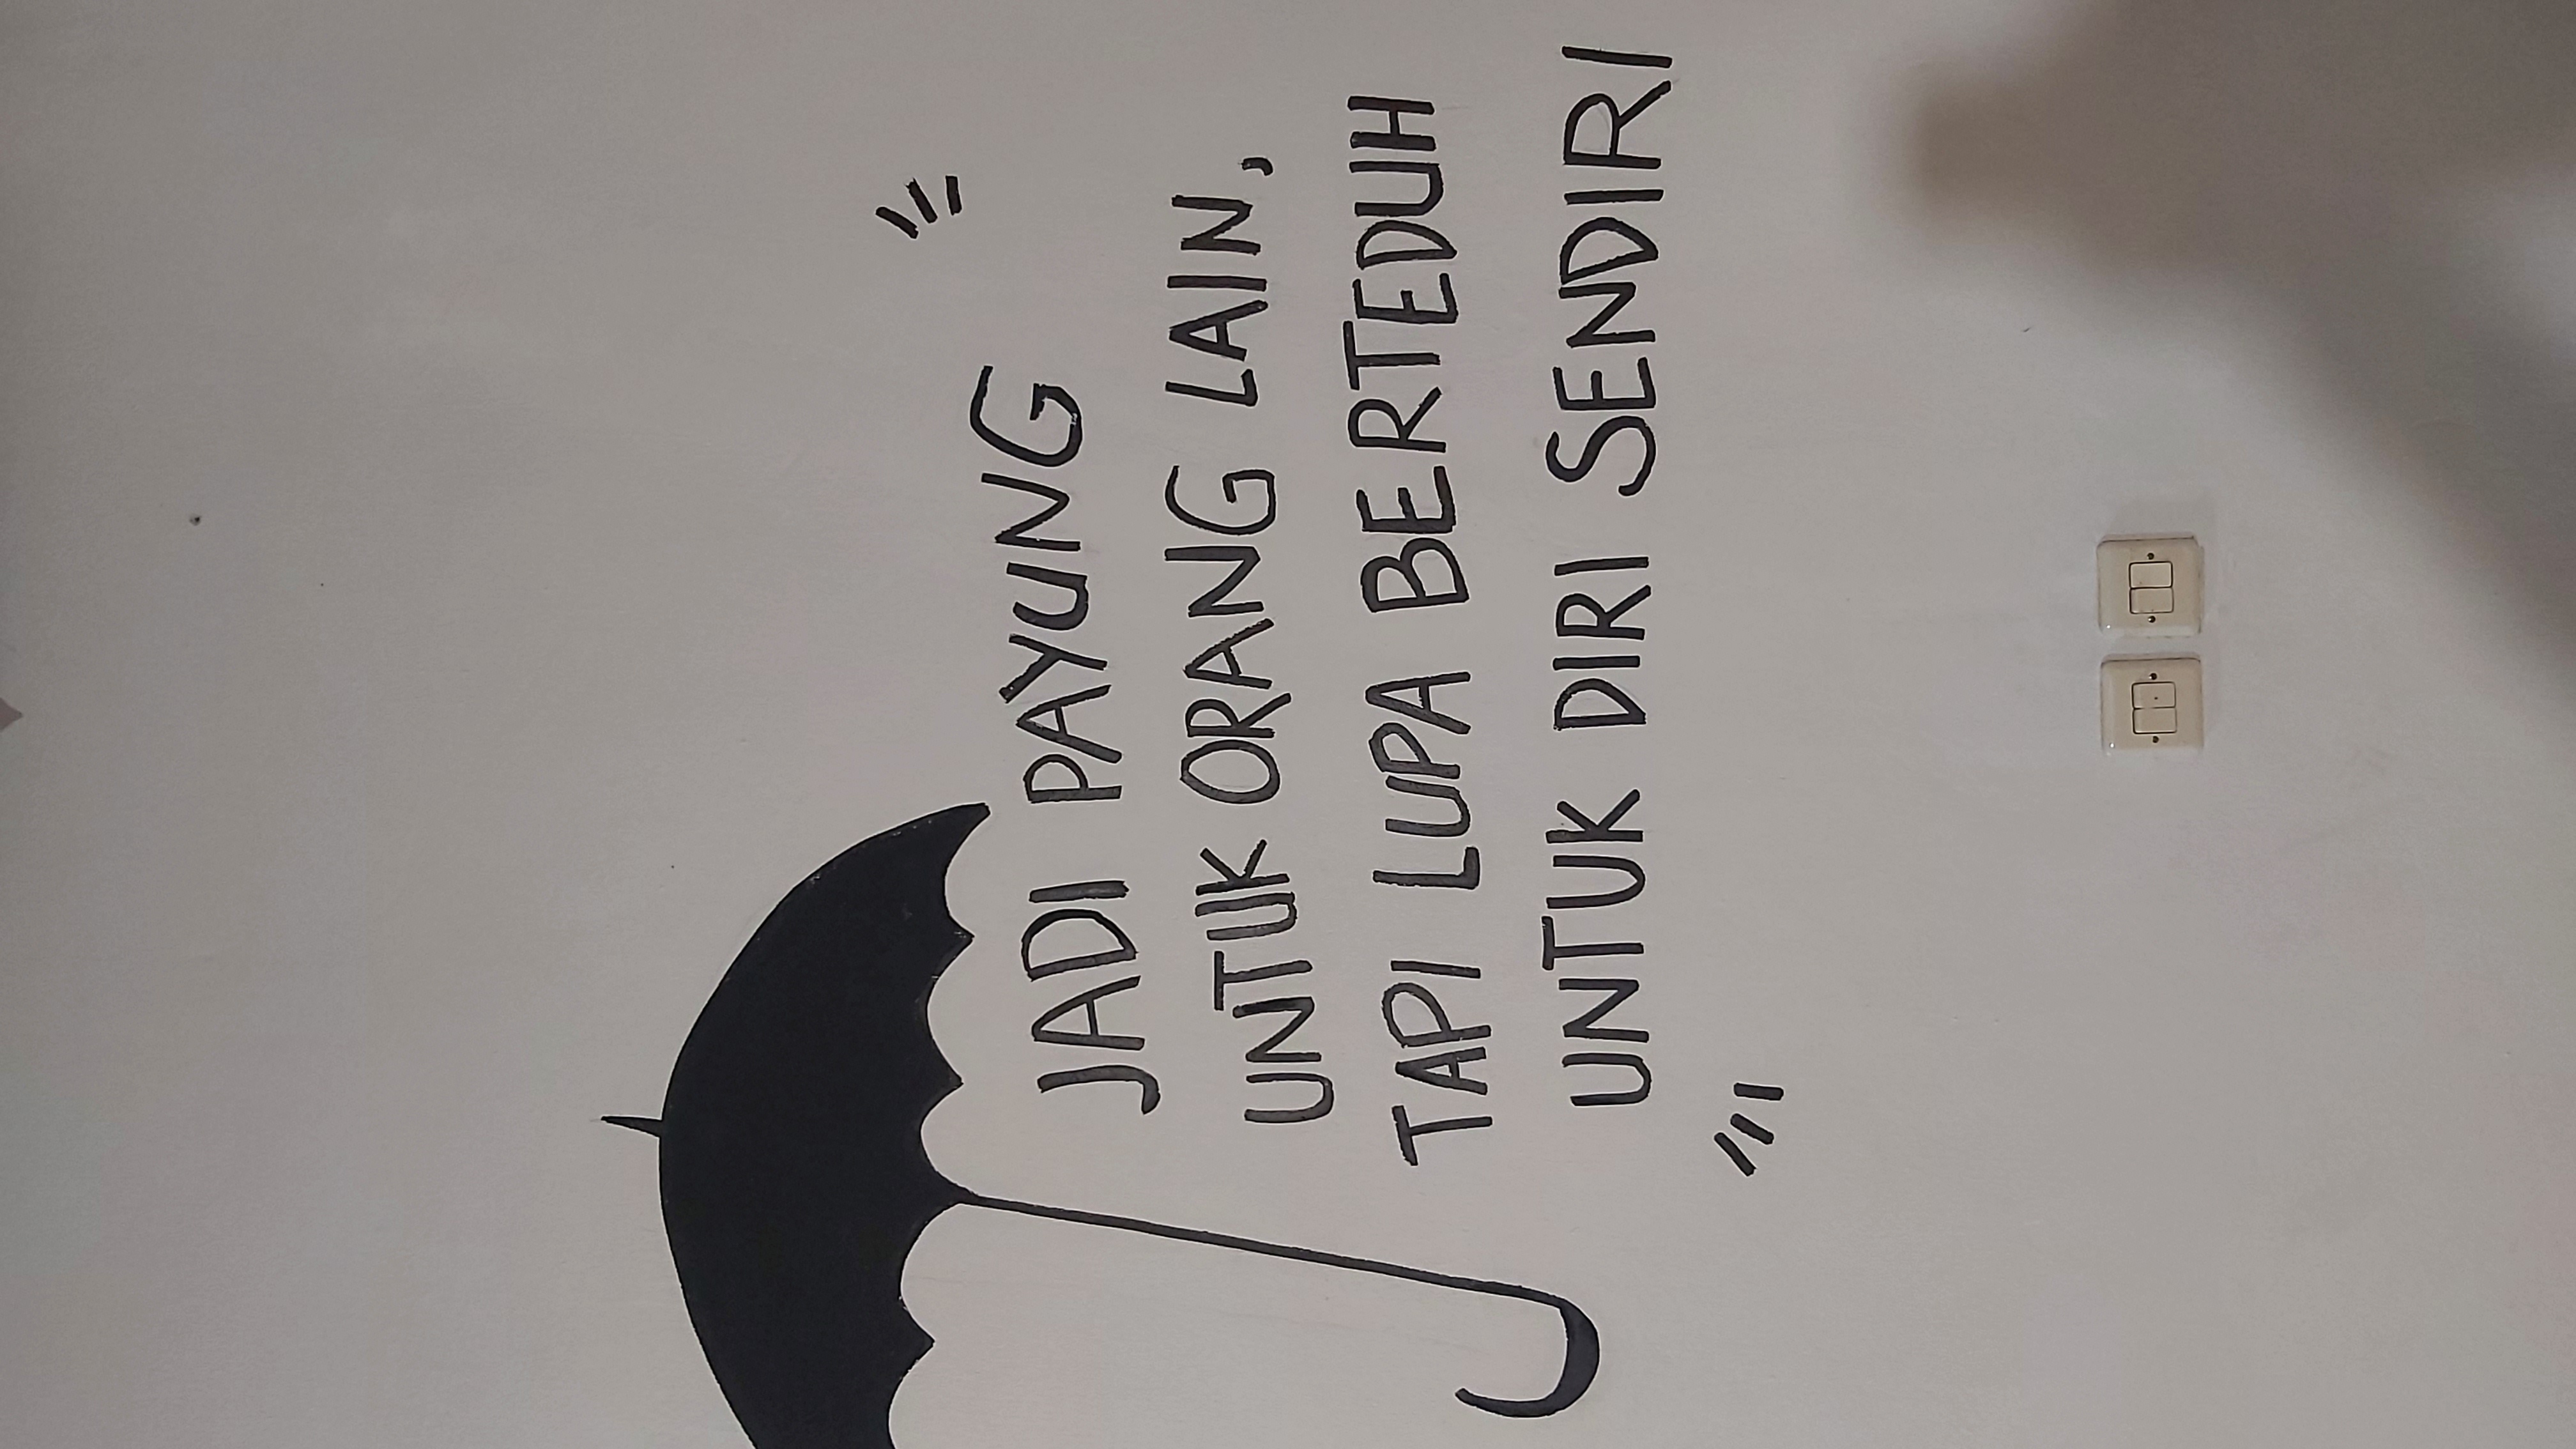 JADI PAYUNG
UNTUK ORANG LAIN,
TAPI LUPA BERTEDUH
UNTUK DIRI SENDIRI